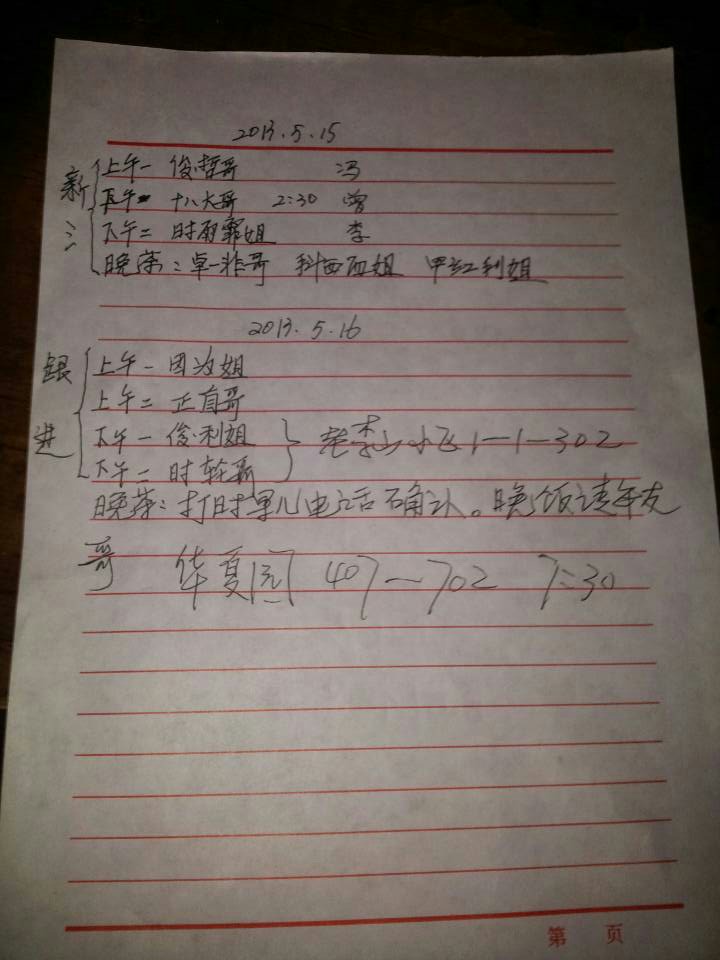 2013.5.15
新 上午一 俊哲哥 冯
下午 十八大哥 2:30 曾
三 下午二 时雨霏姐 李
晚茶：卓一非哥 科西西姐 甲红利姐
2013.5.16
银 上午一 因为姐
上午二 正直哥
进 下午一 俊利姐 老李 小区1-1-302
下午二 时
晚茶：打时 电话确认。晚饭请年友
哥 华夏园 407-702 7:30
第 页